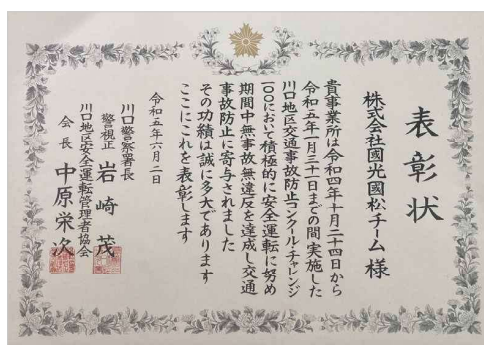 表彰状
株式会社國光國松チーム 様
貴事業所は令和四年十月二十四日から
令和五年一月三十一日までの間実施した
川口地区交通事故防止コンクール・チャレンジ
一〇〇において積極的に安全運転に努め
期間中無事故無違反を達成し交通
事故防止に寄与されました
その功績は誠に多大であります
ここにこれを表彰します
令和五年六月二日
川口警察署長
警視正 岩崎 茂
川口地区安全運転管理者協会
会長 中原栄次